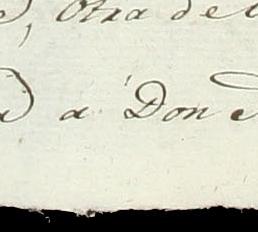 , Otra de
a Don